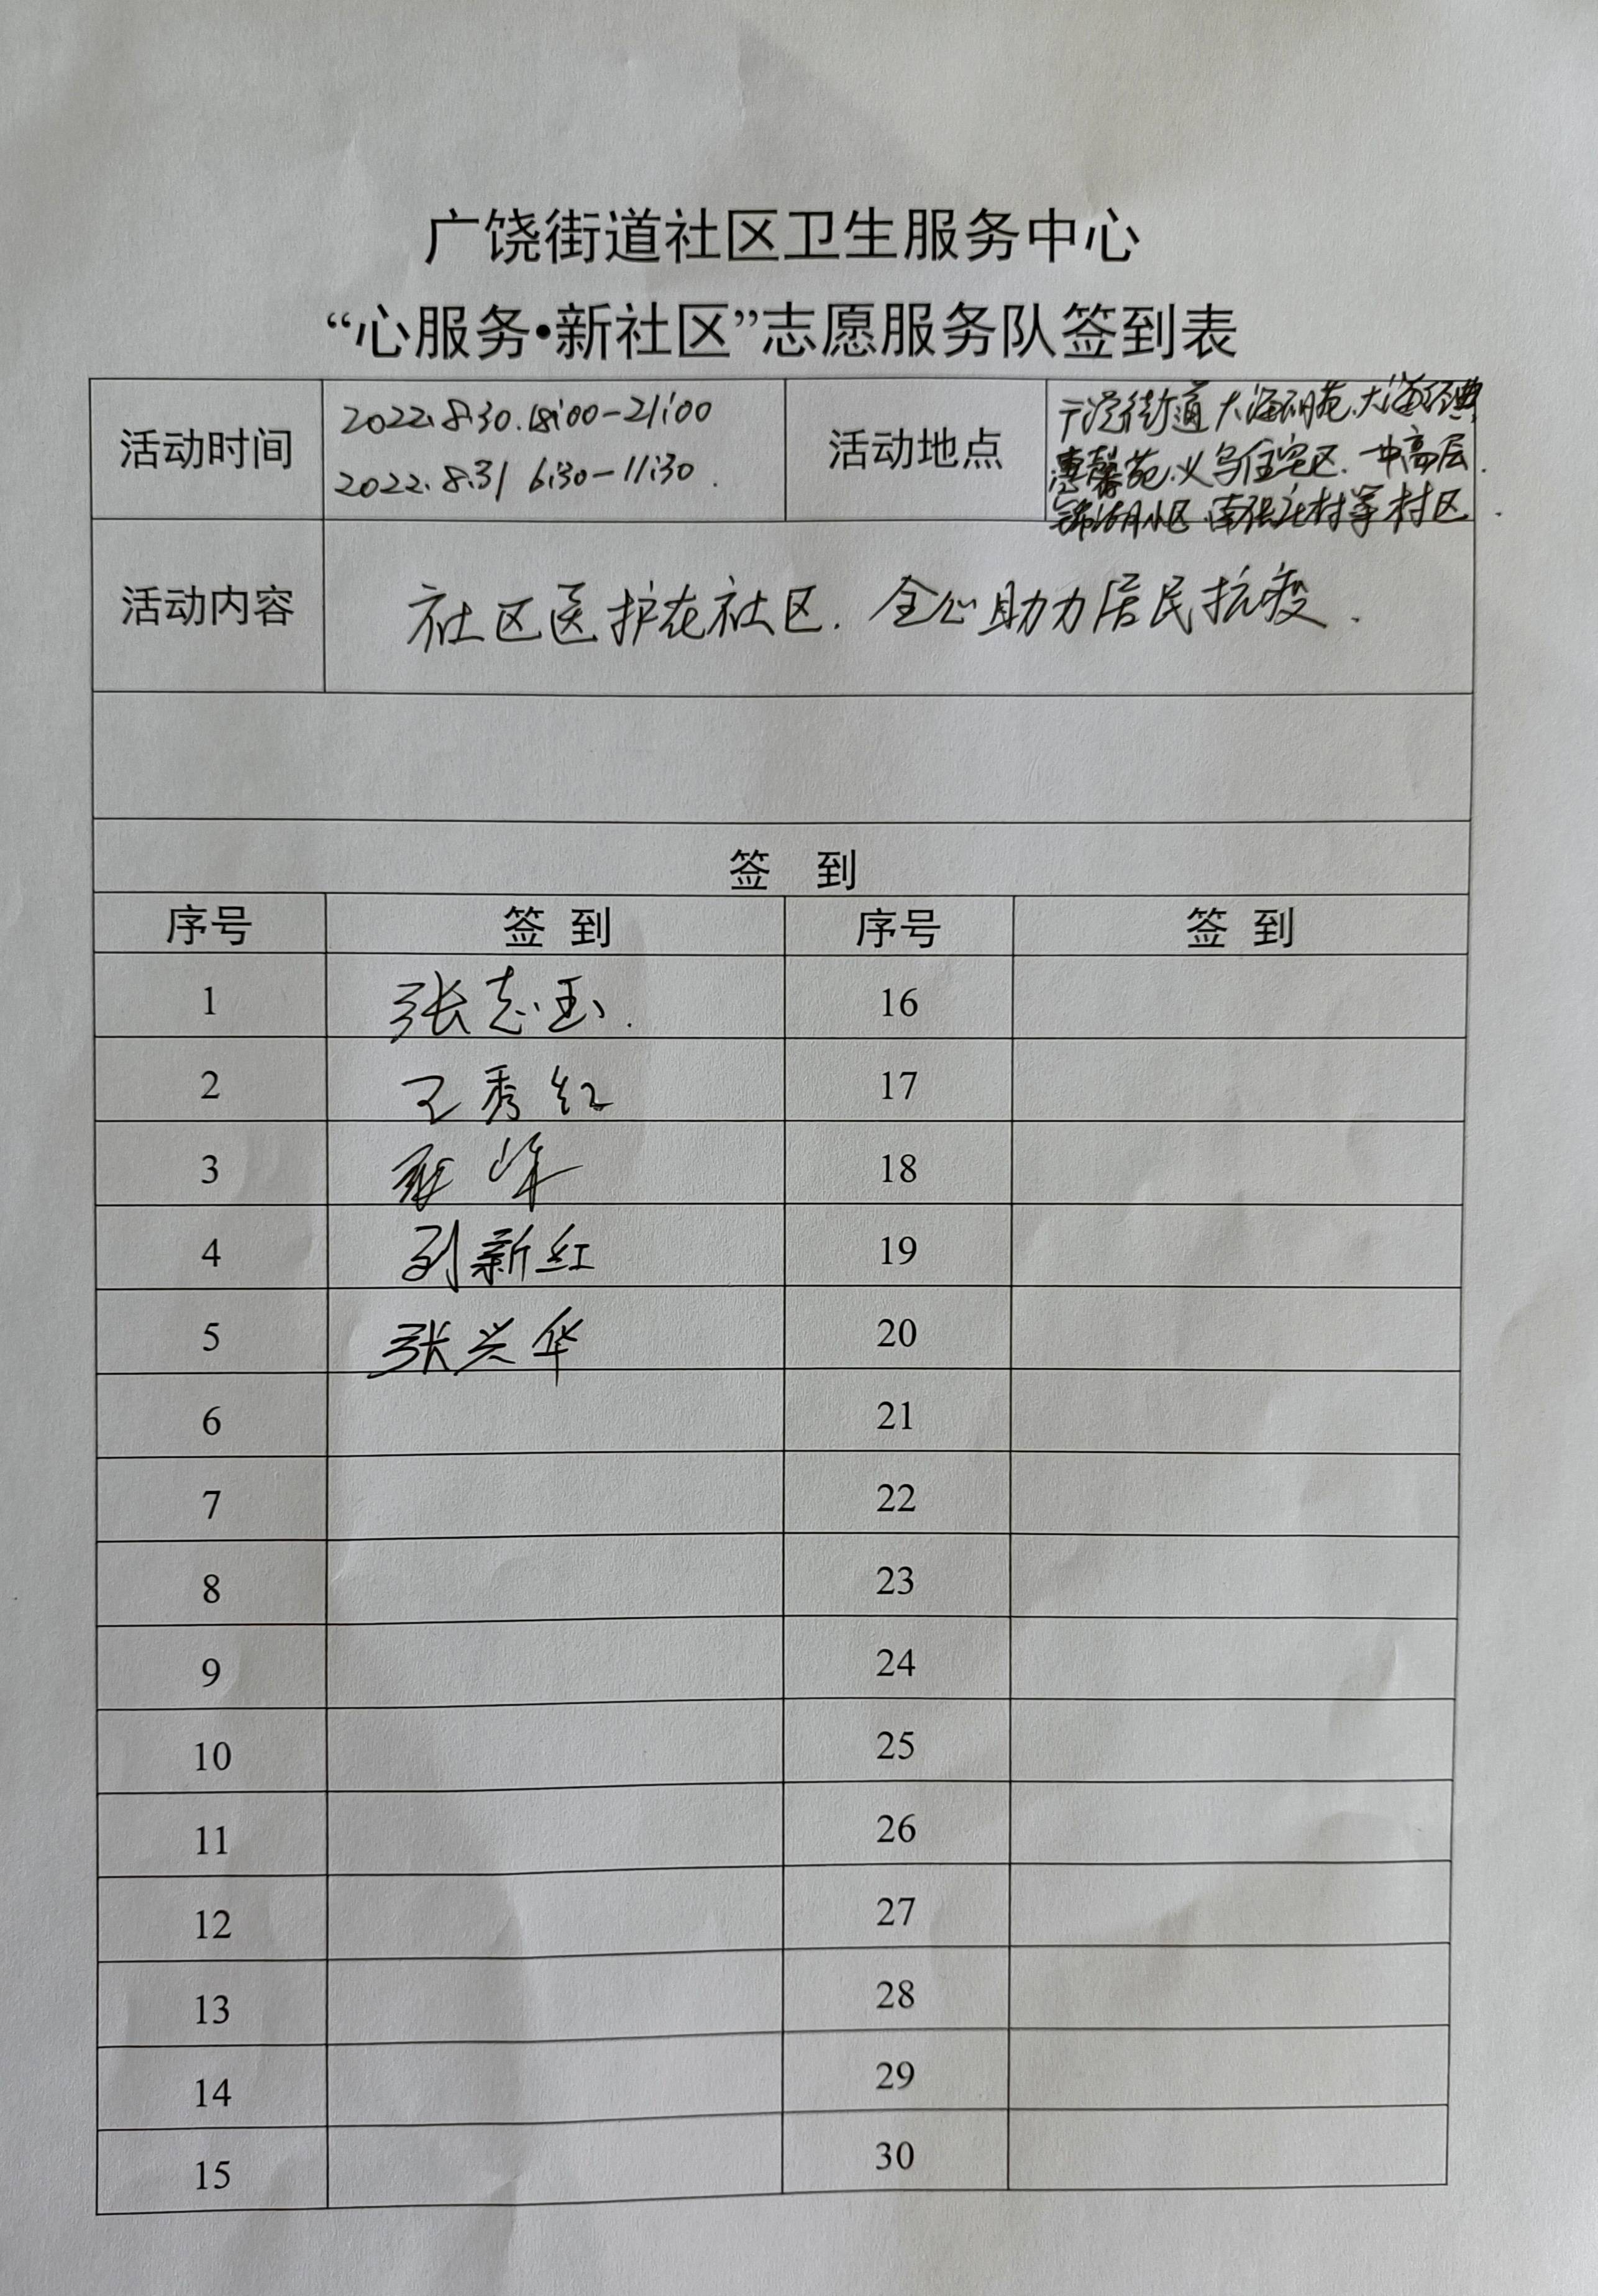 广饶街道社区卫生服务中心
“心服务•新社区”志愿服务队签到表
活动时间
2022.8.30.18:00-21:00
2022.8.31 6:30-11:30.
活动地点
广饶街道大海明苑.大海经典
惠馨苑.义乌住宅区.中高层.
锦湖小区.南张庄村等村区.
活动内容
社区医护在社区.全心助力居民抗疫.
签 到
序号 签到 序号 签到
1 张志玉. 16
2 王秀红 17
3 峰 18
4 刘新红 19
5 张兴华 20
6 21
7 22
8 23
9 24
10 25
11 26
12 27
13 28
14 29
15 30